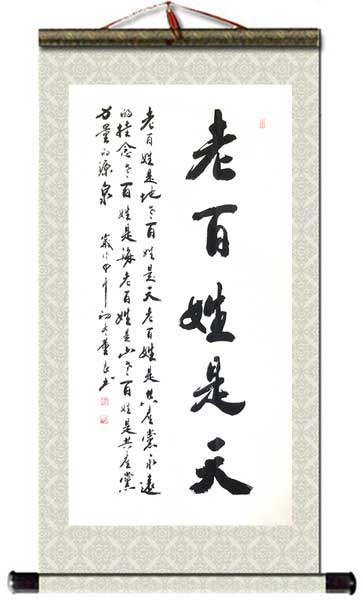 老百姓是天
老百姓是地老百姓是天老百姓是共產黨永遠
的挂念老百姓是海老百姓是山老百姓是共產黨
力量的源泉